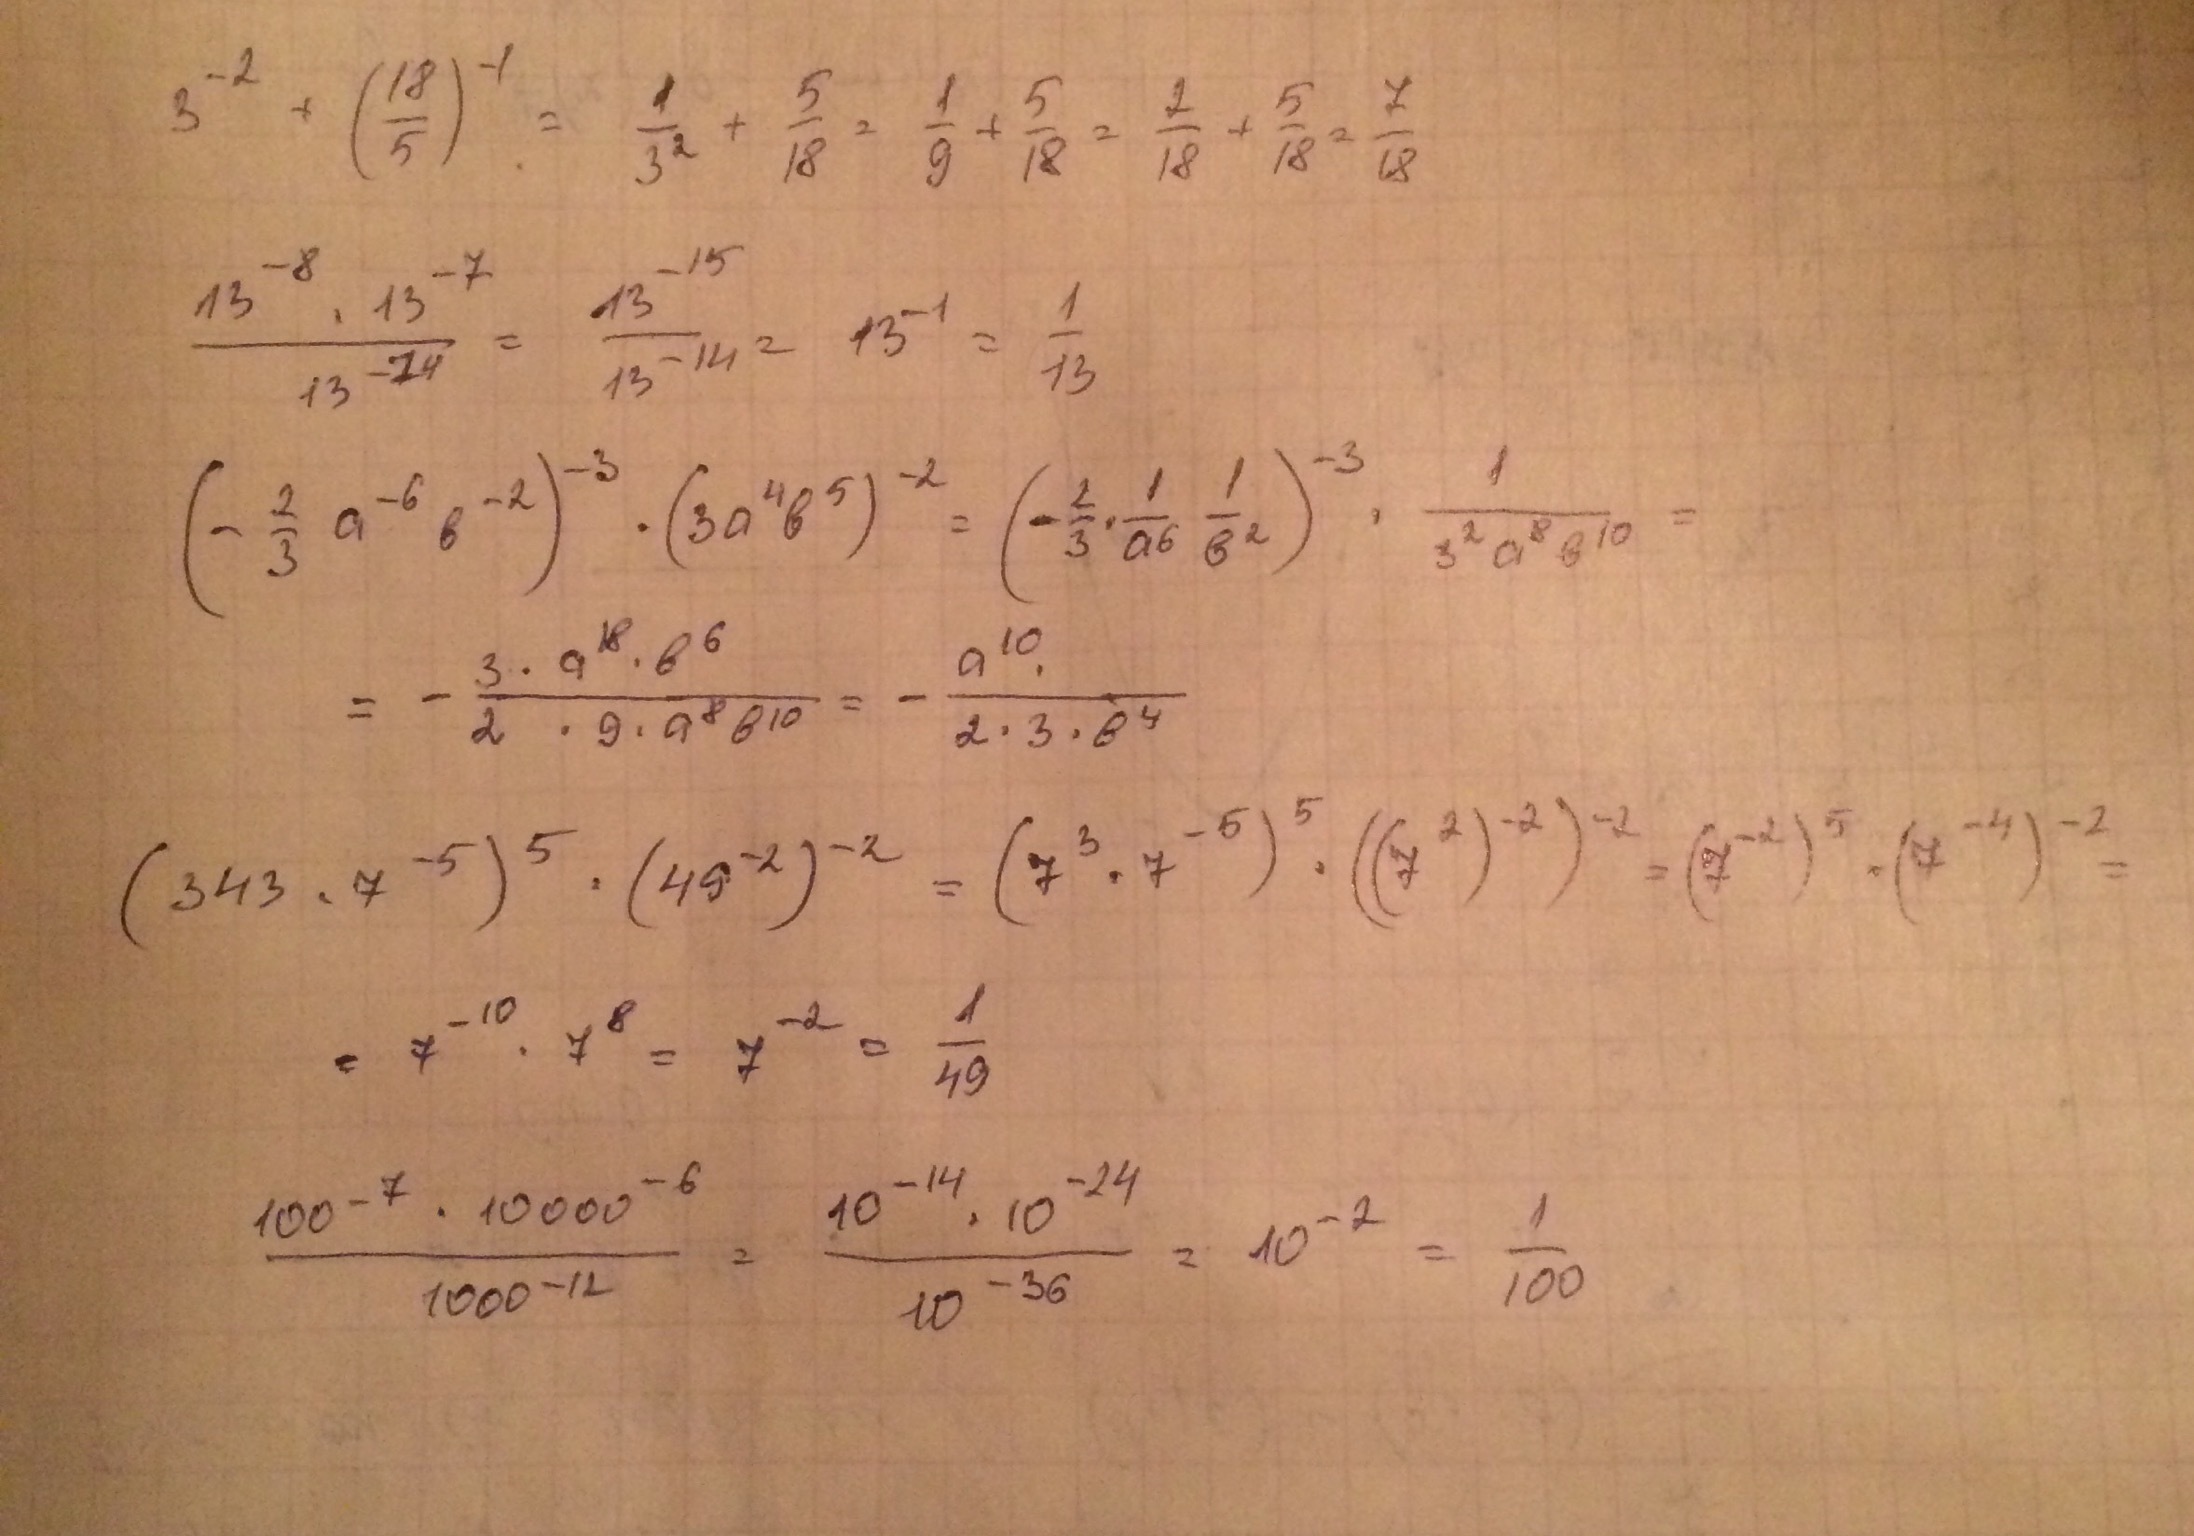 3^{-2} + (18/5)^{-1} = 1/3^2 + 5/18 = 1/9 + 5/18 = 2/18 + 5/18 = 7/18
(13^{-8} · 13^{-7})/13^{-14} = 13^{-15}/13^{-14} = 13^{-1} = 1/13
(- 2/3 a^{-6} b^{-2})^{-3} · (3a^4b^5)^{-2} = (- 2/3 · 1/a^6 1/b^2)^{-3} · 1/(3^2 a^8 b^{10}) =
= - (3 · a^{18} · b^6)/(2 · 9 · a^8 b^{10}) = - (a^{10} ·)/(2 · 3 · b^4)
(343 · 7^{-5})^5 · (49^{-2})^{-2} = (7^3 · 7^{-5})^5 · ((7^2)^{-2})^{-2} = (7^{-2})^5 · (7^{-4})^{-2} =
= 7^{-10} · 7^8 = 7^{-2} = 1/49
(100^{-7} · 10000^{-6})/1000^{-12} = (10^{-14} · 10^{-24})/10^{-36} = 10^{-2} = 1/100